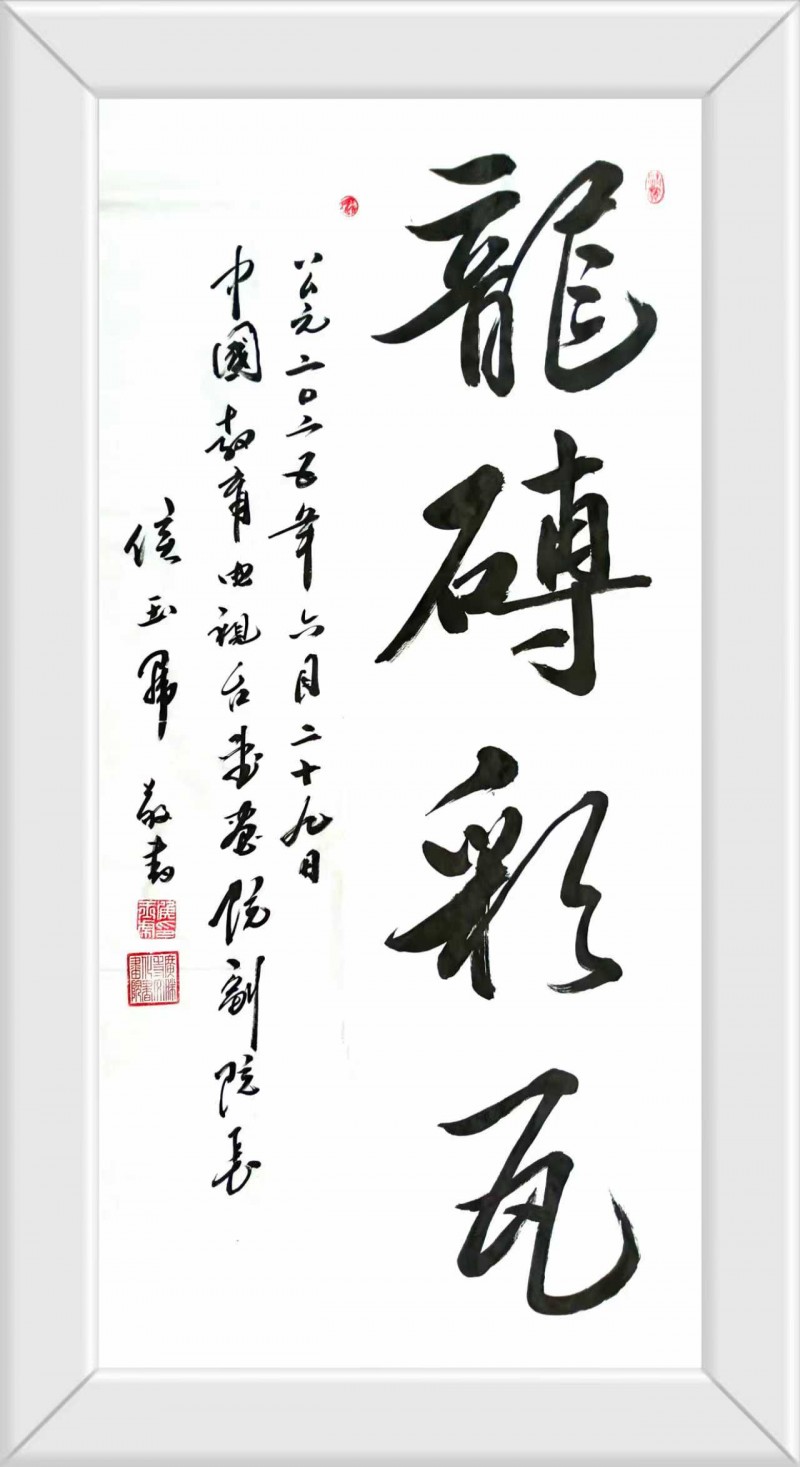 龍磚彩瓦
公元二〇二五年六月二十九日
中國教育电視台書画院副院長
玉 敬書